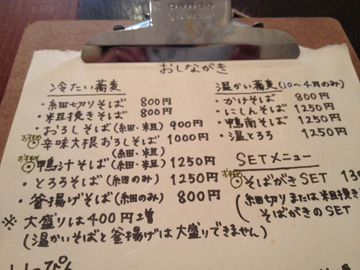 おしながき
冷たい蕎麦
・細切りそば 800円
・粗挽きそば 800円
・おろしそば(細・粗) 900円
・辛味大根おろしそば 1000円
(細・粗)
・鴨汁そば(細・粗) 1250円
・とろろそば(細のみ) 1250円
・釜揚げそば(細のみ) 800円
※ 大盛りは400円増
(温かいそばと釜揚げは大盛りできません)
温かい蕎麦(10〜4月のみ)
・かけそば 800円
・にしんそば 1250円
・鴨南そば 1250円
・温とろろ 1250円
SETメニュー
そばがきSET
(細切りまたは粗挽き
そばがきのSET)